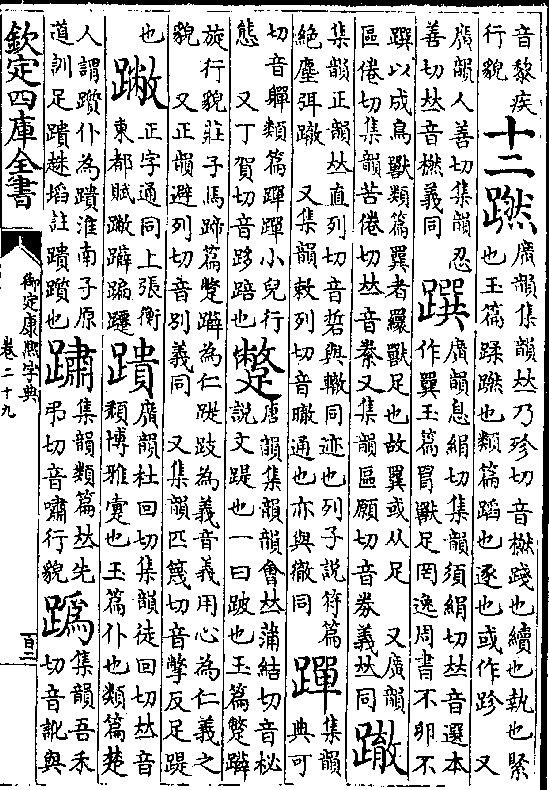 音黎疾
行貌
十二
蹨
廣韻集韻𠀤乃殄切音撚踐也續也執也緊
也玉篇蹂蹨也類篇蹈也逐也或作跈 又
廣韻人善切集韻忍
善切𠀤音橪義同
䠣
廣韻息絹切集韻須絹切𠀤音選本
作𦌔玉篇罥獸足罔逸周書不卵不
䠣以成鳥獸類篇𦌔者羂獸足也故𦌔或从足 又廣韻
區倦切集韻苦倦切𠀤音絭又集韻區願切音劵義𠀤同
𨅊
集韻正韻𠀤直列切音哲與轍同迹也列子說符篇
絕塵弭𨅊 又集韻敕列切音瞮通也亦與徹同
䠤
集韻
典可
切音軃類篇䠤䠤小兒行
態 又丁賀切音跢踣也
蹩
唐韻集韻韻會𠀤蒲結切音柲
說文踶也一曰跛也玉篇蹩躠
旋行貌莊子馬蹄篇蹩躠為仁踶跂為義音義用心為仁義之
貌 又正韻避列切音別義同 又集韻匹蔑切音擎反足踶
也
䠥
正字通同上張衡
東都賦䠥躠蹁躚
蹪
廣韻杜回切集韻徒回切𠀤音
頹博雅㚄也玉篇仆也類篇楚
人謂躓仆為蹪淮南子原
道訓足蹪趎埳註蹪躓也
集韻類篇𠀤先
弔切音嘯行貌
集韻吾禾
切音訛與
欽定四庫全書
御定康熙字典
卷二十九
百二